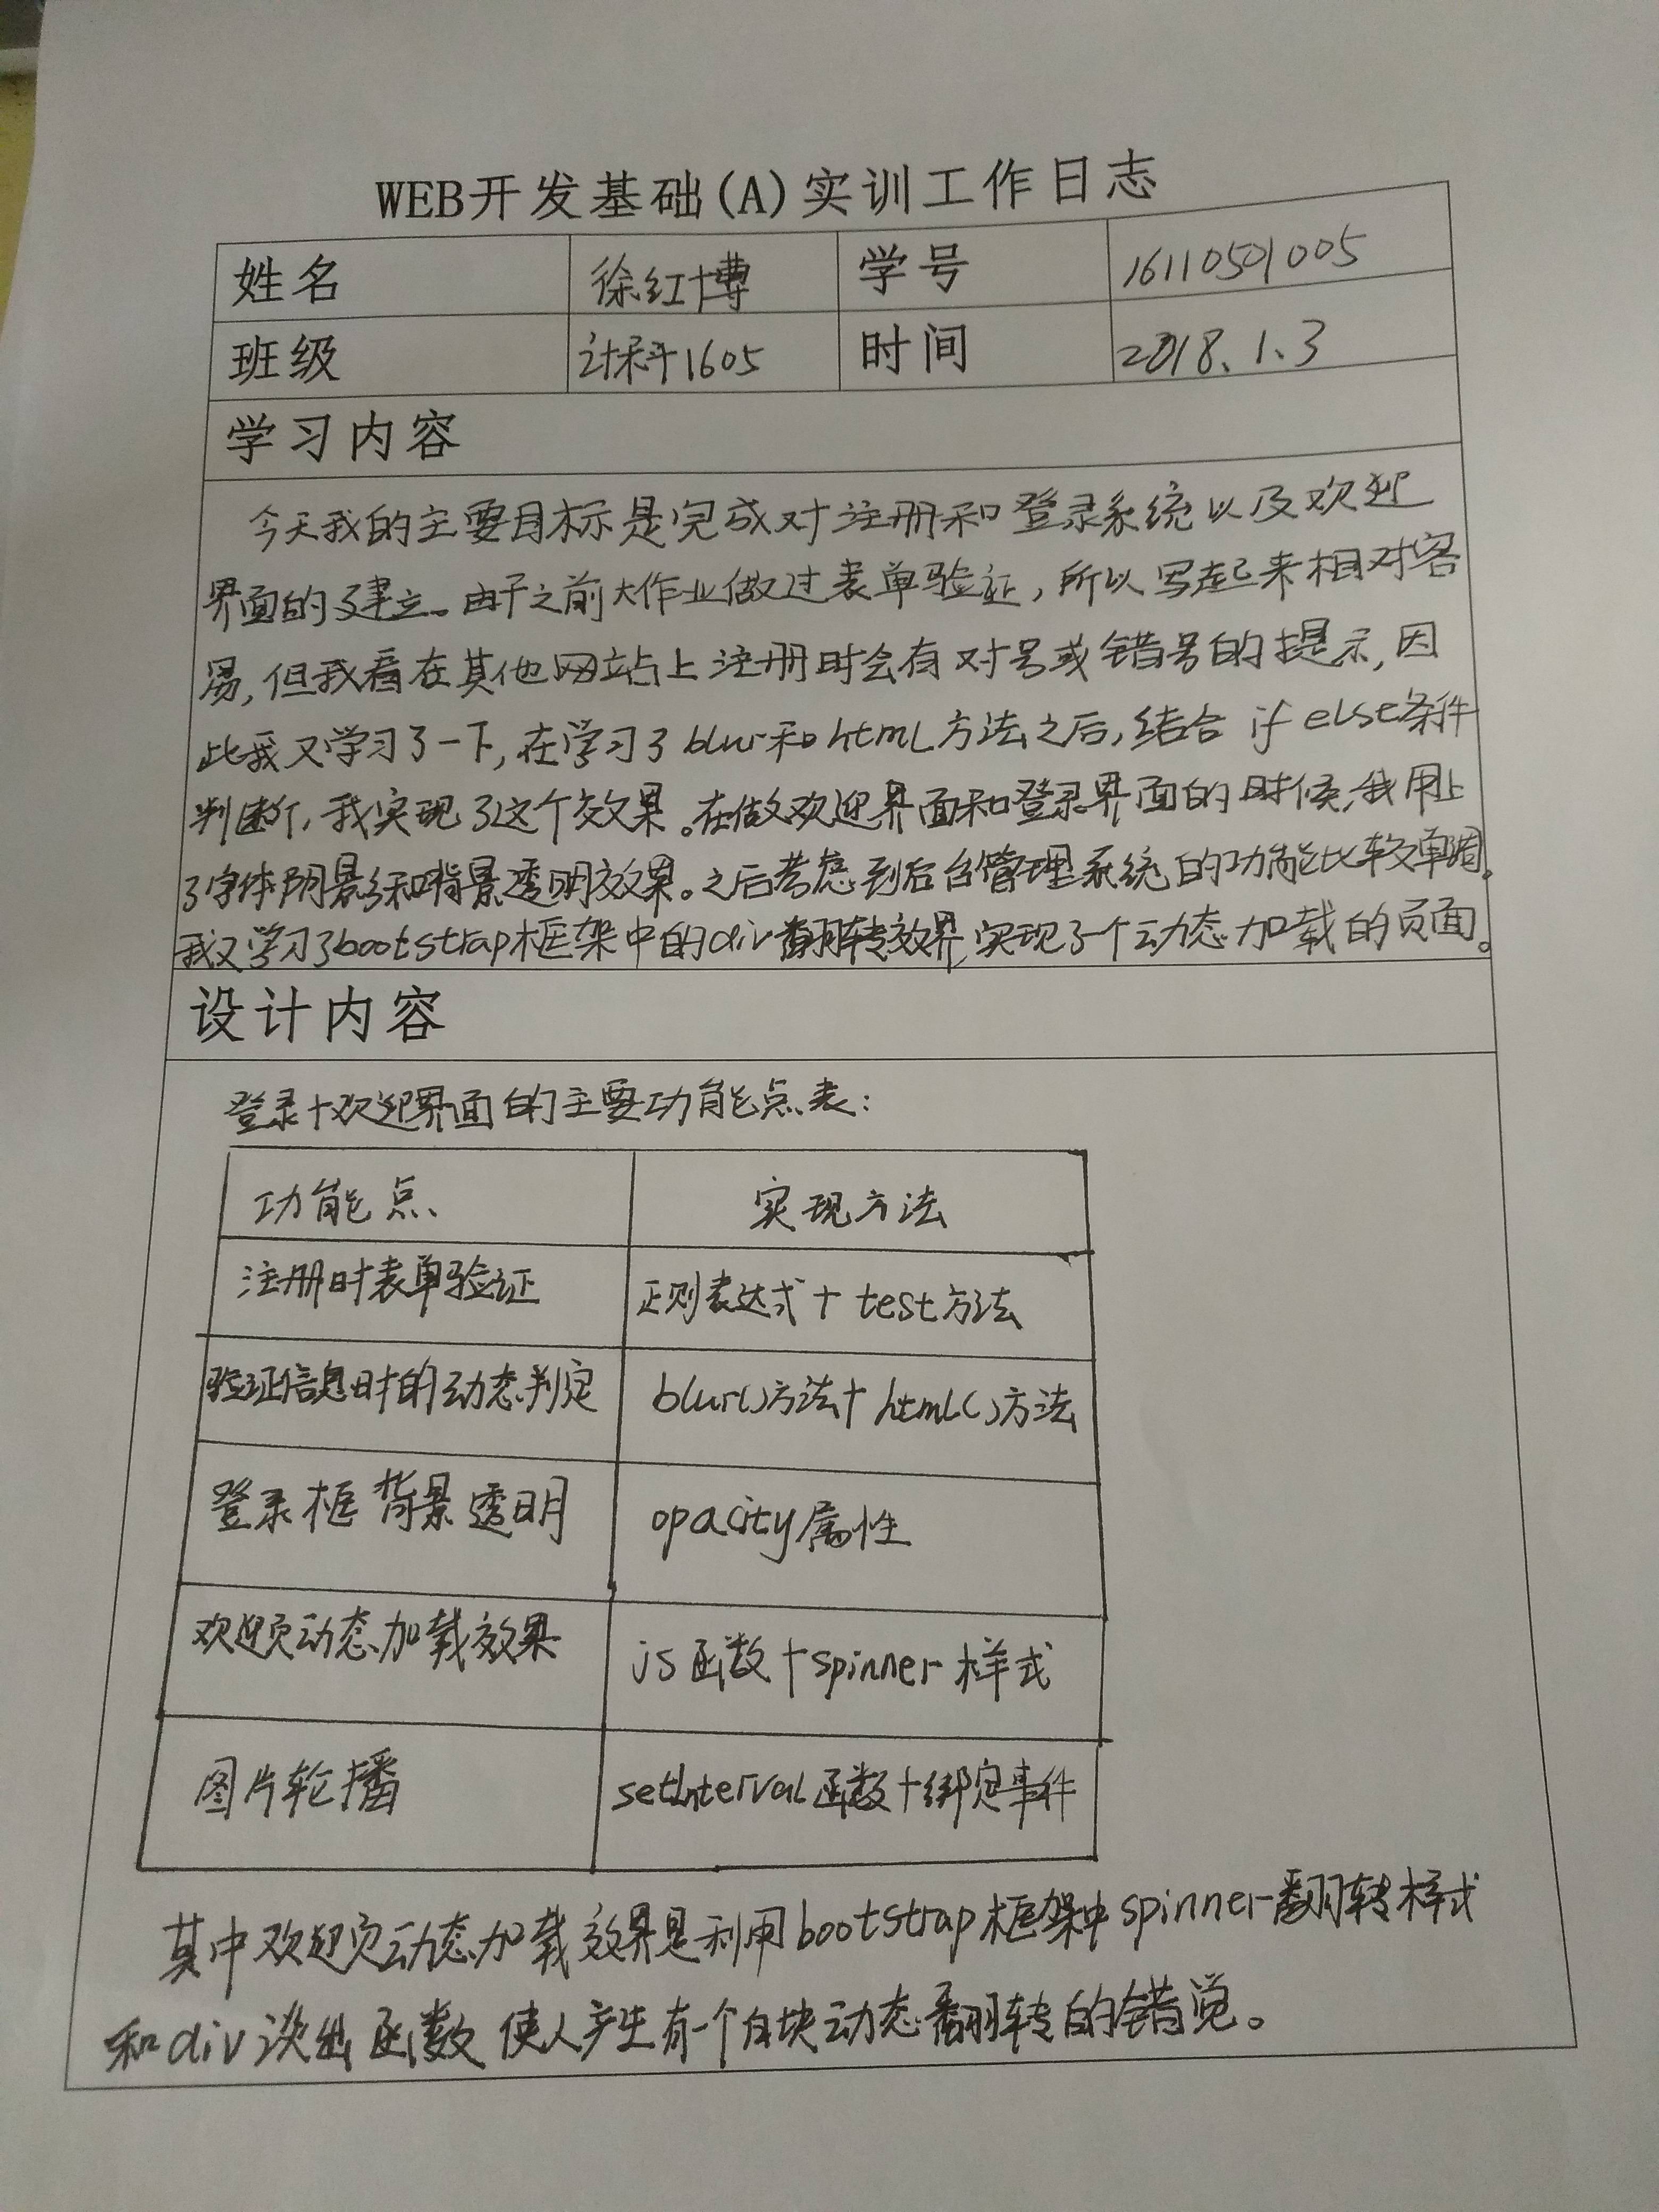 WEB开发基础(A)实训工作日志
姓名 徐红博 学号 16110501005
班级 计科1605 时间 2018.1.3
学习内容
今天我的主要目标是完成对注册和登录系统以及欢迎
界面的建立。由于之前大作业做过表单验证,所以写起来相对容
易,但我看在其他网站上注册时会有对号或错号的提示,因
此我又学习了一下,在学习了blur和html方法之后,结合 if else条件
判断,我实现了这个效果。在做欢迎界面和登录界面的时候,我用上
了字体阴影和背景透明效果。之后考虑到后台管理系统的功能比较单调。
我又学习了bootstrap框架中的div翻转效果,实现了一个动态加载的页面。
设计内容
登录+欢迎界面的主要功能点表:
功能点 实现方法
注册时表单验证 正则表达式+test方法
验证信息时的动态判定 blur()方法+html()方法
登录框背景透明 opacity属性
欢迎页动态加载效果 js函数+spinner样式
图片轮播 setInterval函数+绑定事件
其中欢迎页动态加载效果是利用bootstrap框架中spinner翻转样式
和div淡出函数使人产生有一个白块动态翻转的错觉。